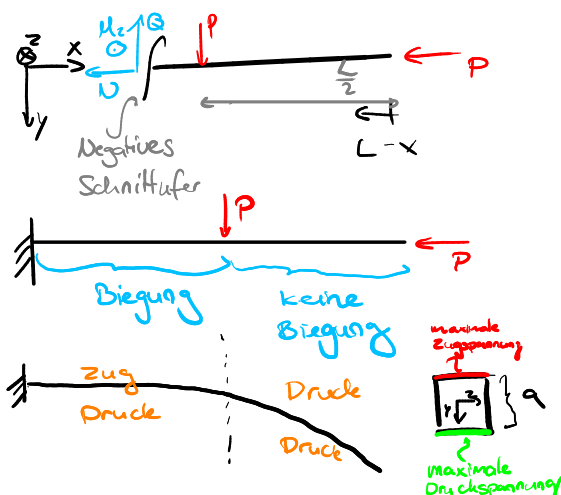 Mz Q P
z x
N
P
y
L/2
Negatives
Schnittufer
L-x
P
P
Biegung
keine
Biegung
Zug
Druck
Druck
Druck
maximale
Zugspannung
z
y
a
maximale
Druckspannung